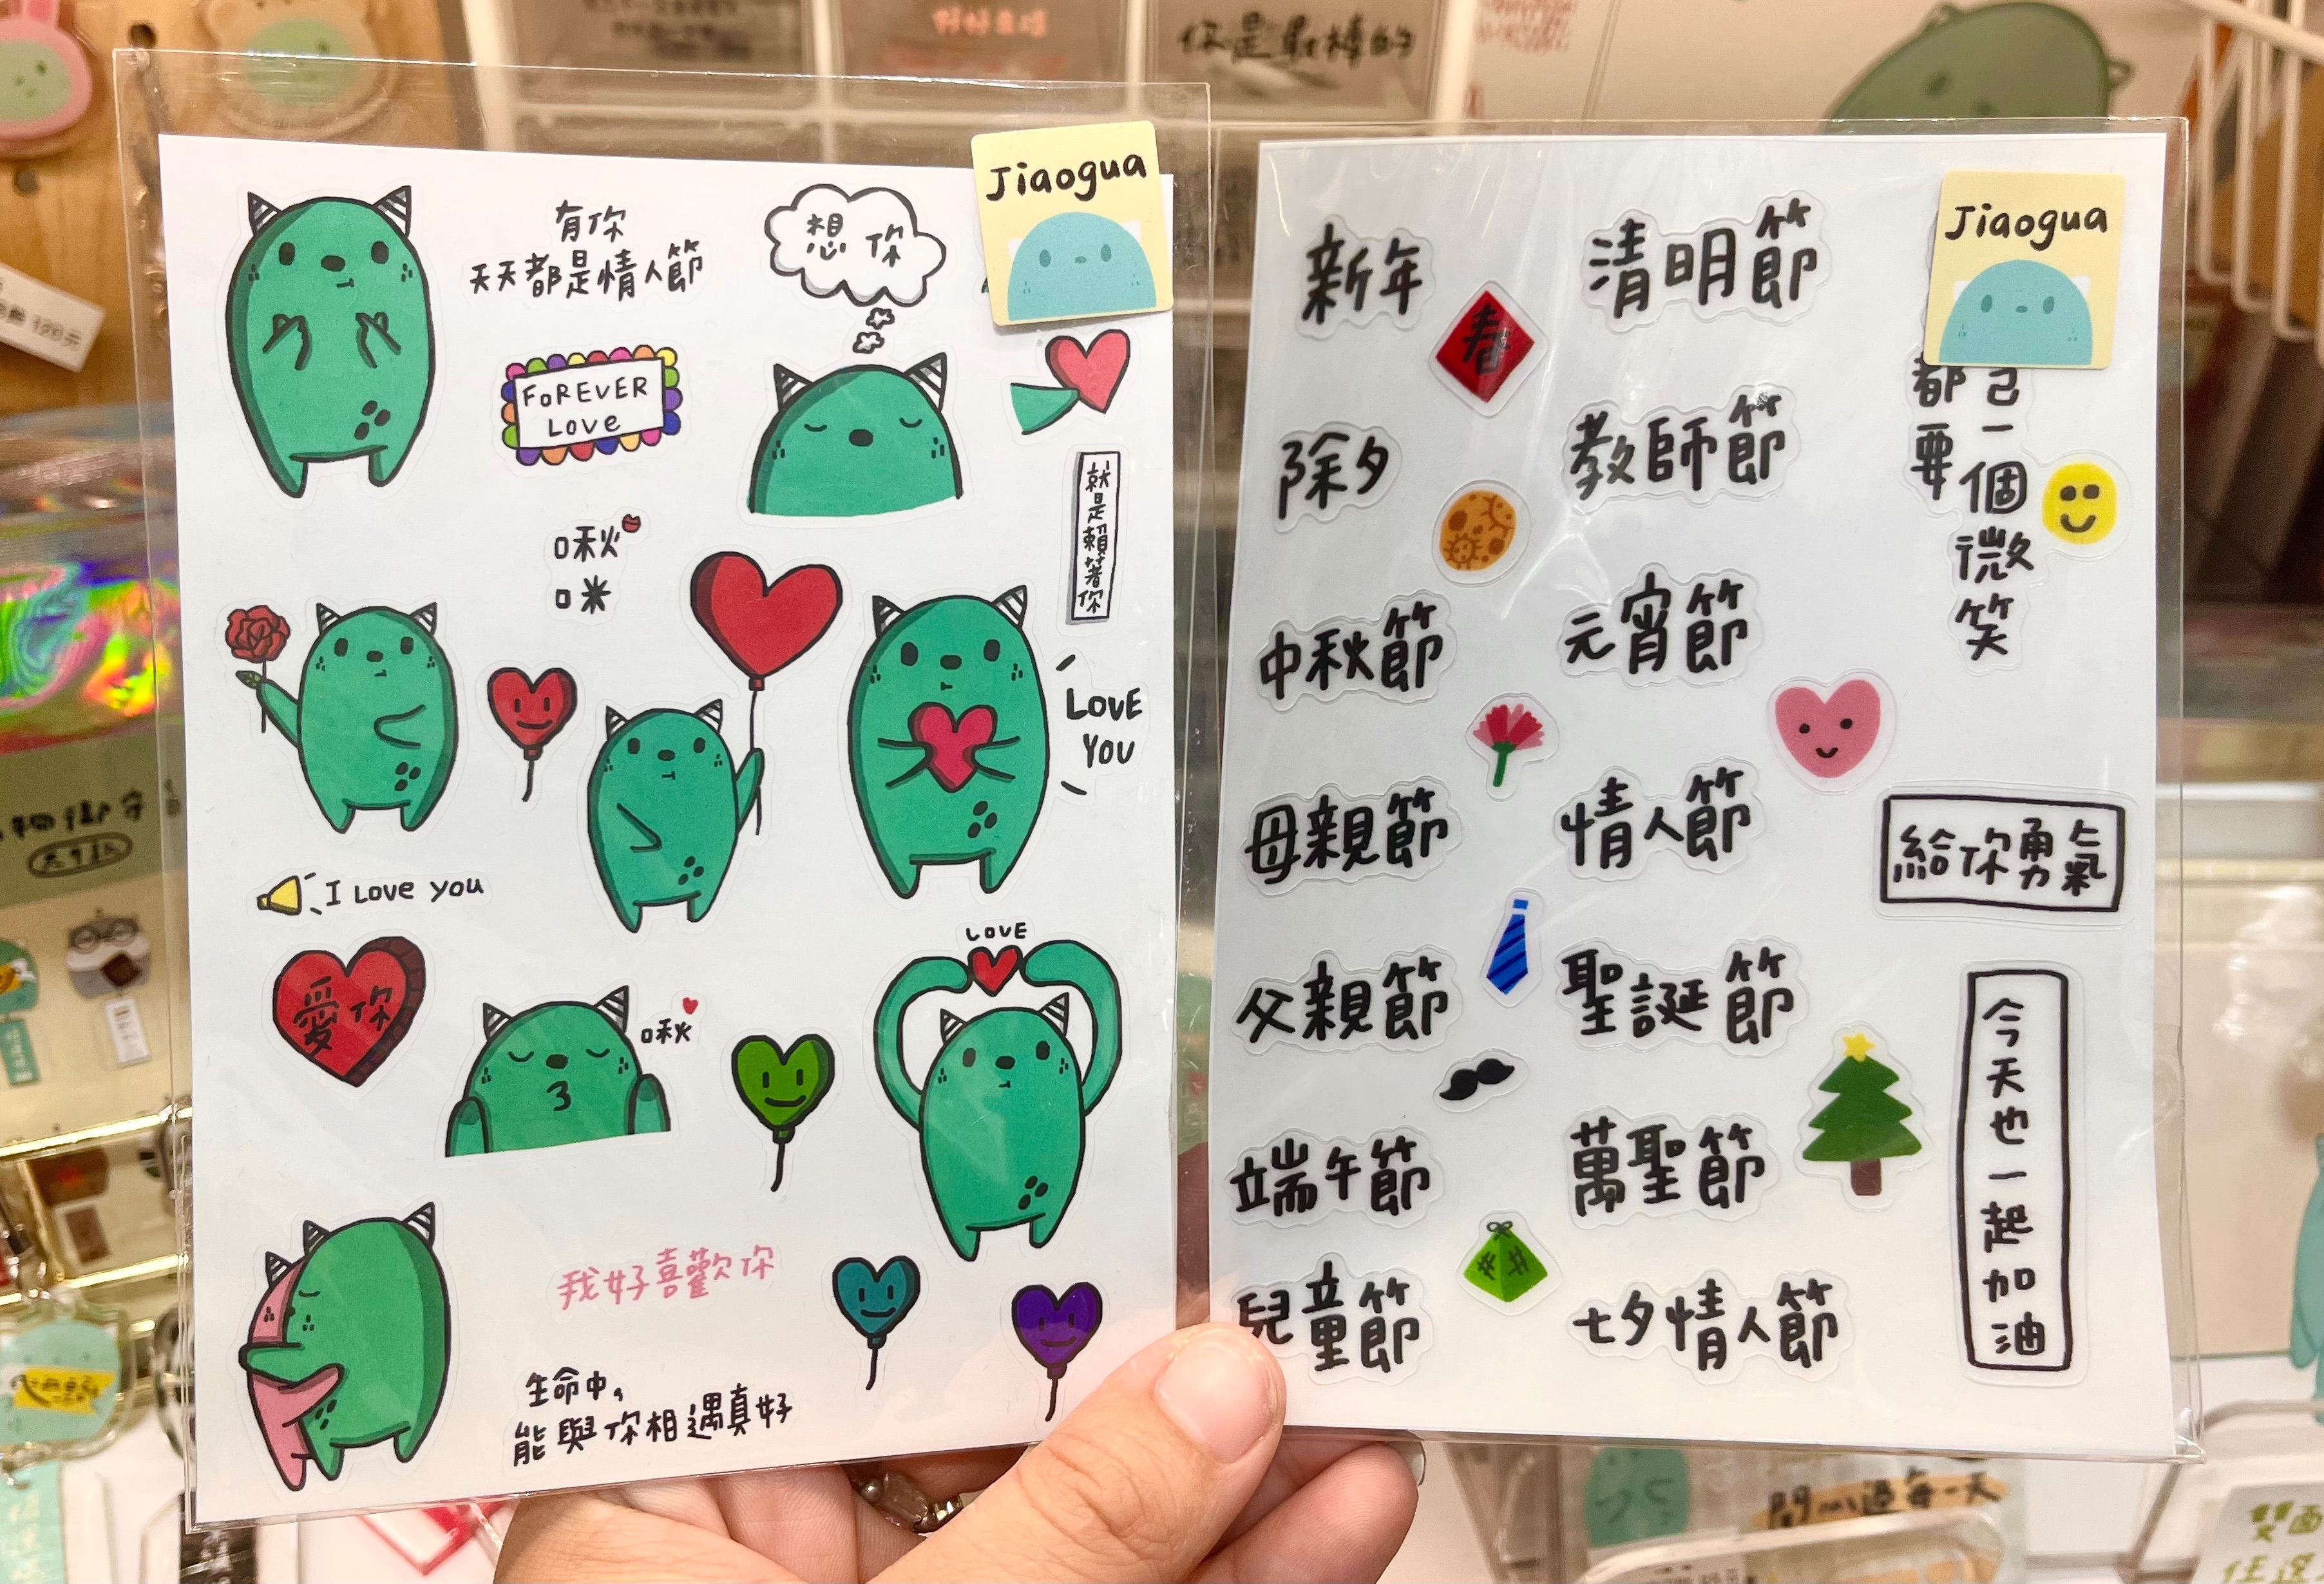 你是最棒的
Jiaogua
有你
天天都是情人節
想你
FOREVER
Love
就是賴著你
啾
咪
LOVE
YOU
I Love you
LOVE
愛你
啾
我好喜歡你
生命中,
能與你相遇真好
Jiaogua
新年
清明節
春
都要
一個微笑
除夕
教師節
中秋節
元宵節
母親節
情人節
給你勇氣
父親節
聖誕節
今天也一起加油
端午節
萬聖節
兒童節
七夕情人節
120元
雙面
任選